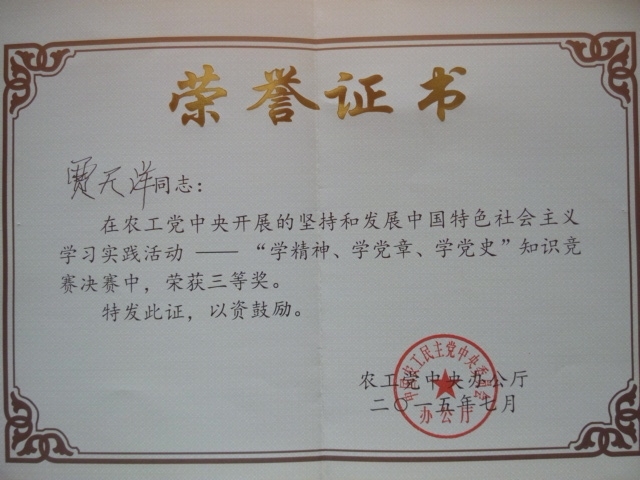 荣誉证书
贾天洋同志：
在农工党中央开展的坚持和发展中国特色社会主义
学习实践活动 —— “学精神、学党章、学党史”知识竞
赛决赛中，荣获三等奖。
特发此证，以资鼓励。
中国农工民主党中央委员会
办公厅
农工党中央办公厅
二〇一五年七月